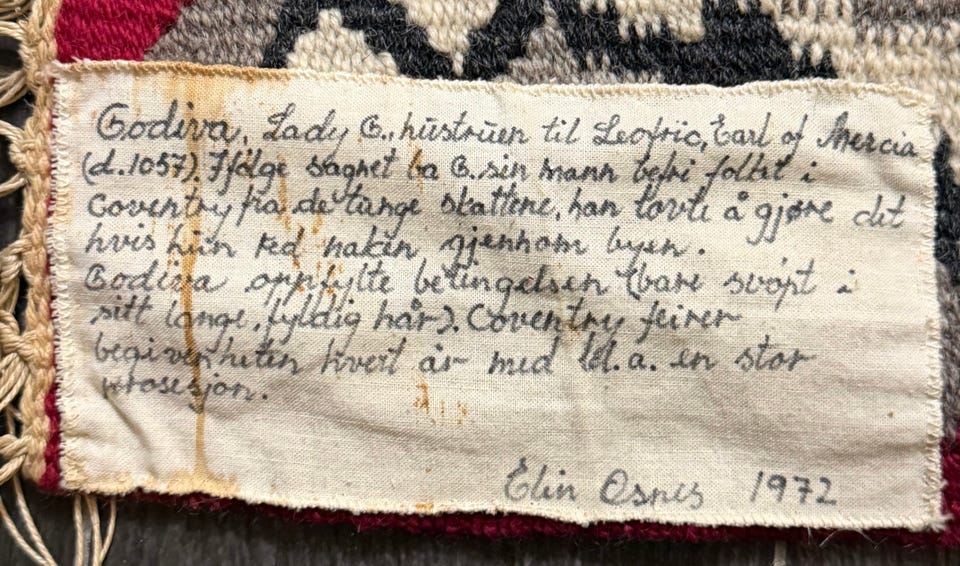 Godiva, Lady G., hustruen til Leofric, Earl of Mercia
(d.1057). Ifølge sagnet ba G. sin mann befri folket i
Coventry fra de tunge skattene, han lovte å gjøre det
hvis hun red naken gjennom byen.
Godiva oppfylte betingelsen (bare svøpt i
sitt lange, fyldig hår). Coventry feirer
begivenheten hvert år med bl.a. en stor
prosesjon.
Elin Osnes 1972